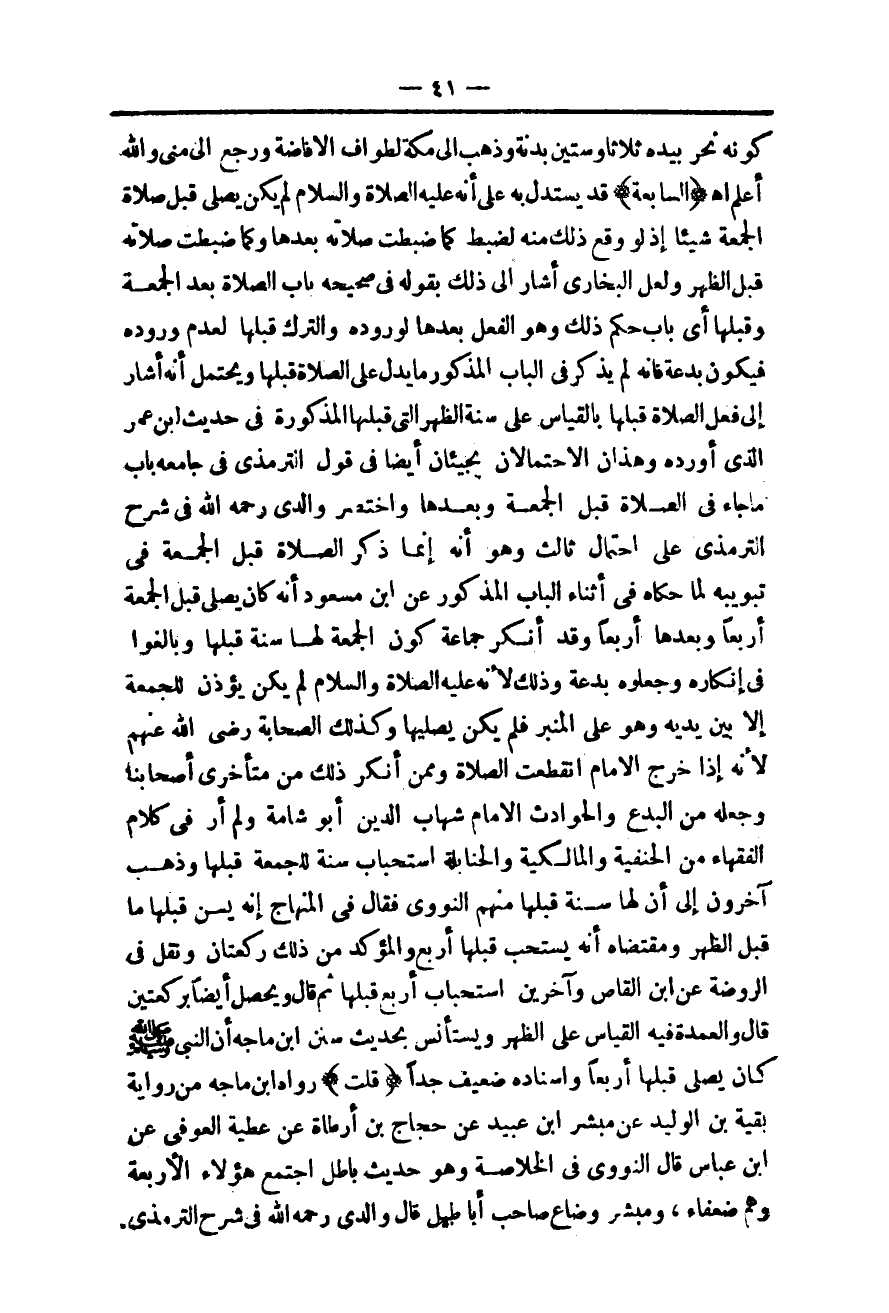 — ٤١ —
كونه نحر بيده ثلاثا وستين بدنة وذهب الى مكة لطواف الافاضة ورجع الى منى والله
أعلم اه ﴿السابعة﴾ قد يستدل به على أنه عليه الصلاة والسلام لم يكن يصلى قبل صلاة
الجمعة شيئا إذ لو وقع ذلك منه لضبط كما ضبطت صلاته بعدها وكما ضبطت صلاته
قبل الظهر ولعل البخارى أشار الى ذلك بقوله فى صحيحه باب الصلاة بعد الجمعـة
وقبلها أى باب حكم ذلك وهو الفعل بعدها لوروده والترك قبلها لعدم وروده
فيكون بدعة فانه لم يذكر فى الباب المذكور مايدل على الصلاة قبلها ويحتمل أنه أشار
إلى فعل الصلاة قبلها بالقياس على سنة الظهر التى قبلها المذكورة فى حديث ابن عمر
الذى أورده وهذان الاحتمالان يجيئان أيضا فى قول الترمذى فى جامعه باب
ماجاء فى الصـلاة قبل الجمعـة وبعـدها واختصر والدى رحمه الله فى شرح
الترمذى على احتمال ثالث وهو أنه إنما ذكر الصـلاة قبل الجمعـة فى
تبويبه لما حكاه فى أثناء الباب المذكور عن ابن مسعود أنه كان يصلى قبل الجمعة
أربعاً وبعدها أربعاً وقد أنـكر جماعة كون الجمعة لهـا سنة قبلها وبالغوا
فى إنكاره وجعلوه بدعة وذلك لأنه عليه الصلاة والسلام لم يكن يؤذن للجمعة
إلا بين يديه وهو على المنبر فلم يكن يصليها وكـذلك الصحابة رضى الله عنهم
لأنه إذا خرج الامام انقطعت الصلاة وممن أنـكر ذلك من متأخرى أصحابنا
وجعله من البدع والحوادث الامام شهاب الدين أبو شامة ولم أر فى كلام
الفقهاء من الحنفية والمالـكية والحنابلة استحباب سنة للجمعة قبلها وذهـب
آخرون إلى أن لها سـنة قبلها منهم النووى فقال فى المنهاج إنه يسن قبلها ما
قبل الظهر ومقتضاه أنه يستحب قبلها أربع والمؤكد من ذلك ركعتان ونقل فى
الروضة عن ابن القاص وآخرين استحباب أربع قبلها ثم قال ويحصل أيضاً بركعتين
قال والعمدة فيه القياس على الظهر ويستأنس بحديث سنن ابن ماجه أن النبى ﷺ
كـان يصلى قبلها أربعاً واسناده ضعيف جداً ﴿قلت﴾ رواه ابن ماجه من رواية
بقية بن الوليد عن مبشر ابن عبيد عن حجاج بن أرطاة عن عطية العوفى عن
ابن عباس قال النووى فى الخلاصـة وهو حديث باطل اجتمع هؤلاء الأربعة
وهم ضعفاء ، ومبشر وضاع صاحب أباطيل قال والدى رحمه الله فى شرح الترمذى.